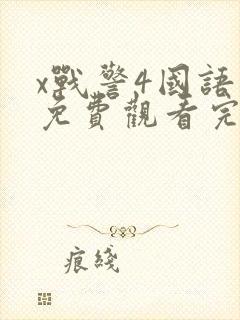 x戰警4國語
免費觀看完
痕綫